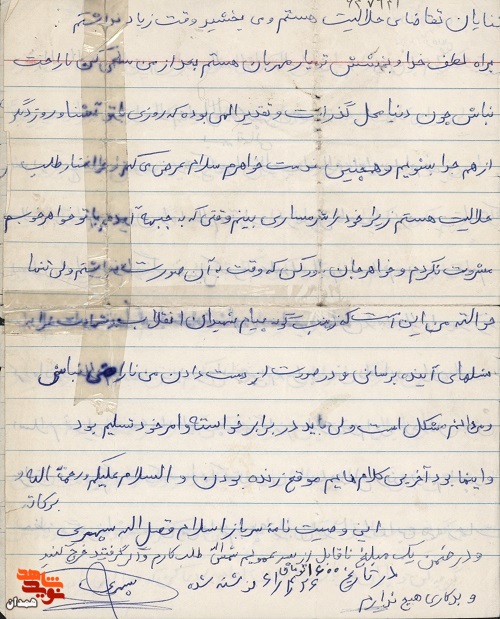 ۶۲۷۶۲۱
تقاضای حلالیت هستم می بخشید وقت زیاد نداشتم
براه لطف خدا و بخشش تو یار مهربان هستم بعد از من ناراحت
نباش چون دنیا محل گذر است و تقدیر الهی بوده که روزی با تو آشنا و روز دیگر
از هم جدا بشویم و همچنین خدمت خواهرم سلام عرض می کنم و از ایشان طلب
حلالیت هستم زیرا خود را شرمسار می بینم وقتی که به جبهه آمدم با تو خواهر خوبم
مشورت نکردم و خواهر جان باور کن که وقت به آن صورت نداشتم ولی تنها
خواسته من این است که زینب گونه پیام شهیدان انقلاب
نسلهای آینده برسانی و در صورت از دست دادن من ناراضی نباش
و میدانم مشکل است ولی باید در برابر خواسته و امر خود تسلیم بود
و اینها بود آخرین کلام هایم موقع زنده بودن و السلام علیکم و رحمة الله و
برکاته
این وصیت نامه سرباز اسلام فضل الله سپهری
و در ضمن یک مبلغ ناقابل از پسر عمویم طلب کارم و آن گرفتید خرج کنید
در تاریخ نوشته شده
و بدکاری هیچ ندارم
سپهری
شاهد
نوید
همدان